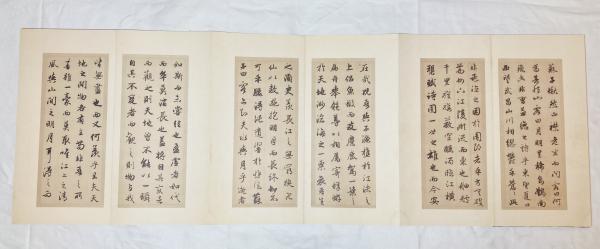 蘇子愀然正襟危坐而問客曰何
為其然也客曰月明星稀烏鵲南
飛此非曹孟德之詩乎東望夏口
西望武昌山川相繆鬱乎蒼蒼此
非孟德之困於周郎者乎方其破
荊州下江陵順流而東也舳艫
千里旌旗蔽空釃酒臨江橫
槊賦詩固一世之雄也而今安
在哉況吾與子漁樵於江渚之
上侶魚蝦而友麋鹿駕一葉之
扁舟舉匏尊以相屬寄蜉蝣
於天地渺滄海之一粟哀吾生
之須臾羨長江之無窮挾飛
仙以遨遊抱明月而長終知不
可乎驟得託遺響於悲風蘇
子曰客亦知夫水與月乎逝者
如斯而未嘗往也盈虛者如代
而卒莫消長也蓋將自其變者
而觀之則天地曾不能以一瞬
自其不變者而觀之則物與我
皆無盡也而又何羨乎且夫天
地之間物各有主苟非吾之所
有雖一毫而莫取惟江上之清
風與山間之明月耳得之而